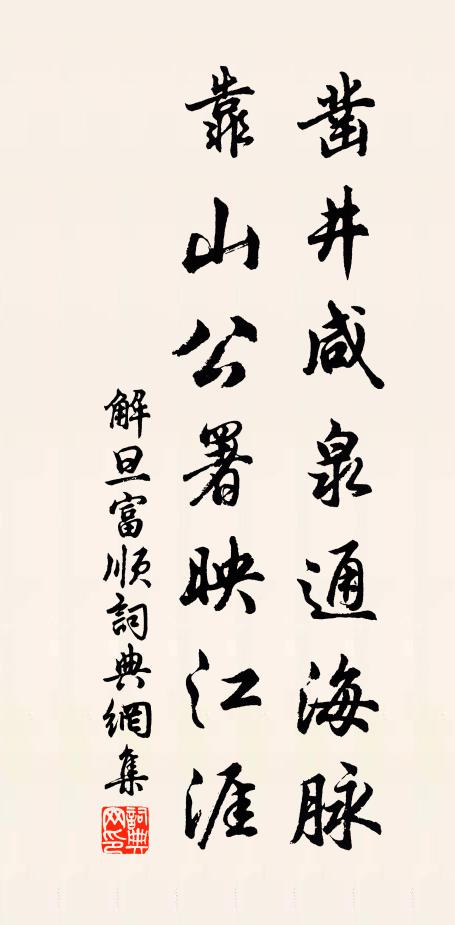 凿井咸泉通海脉
靠山公署映江涯
解旦富顺詞典網集
詞典網印